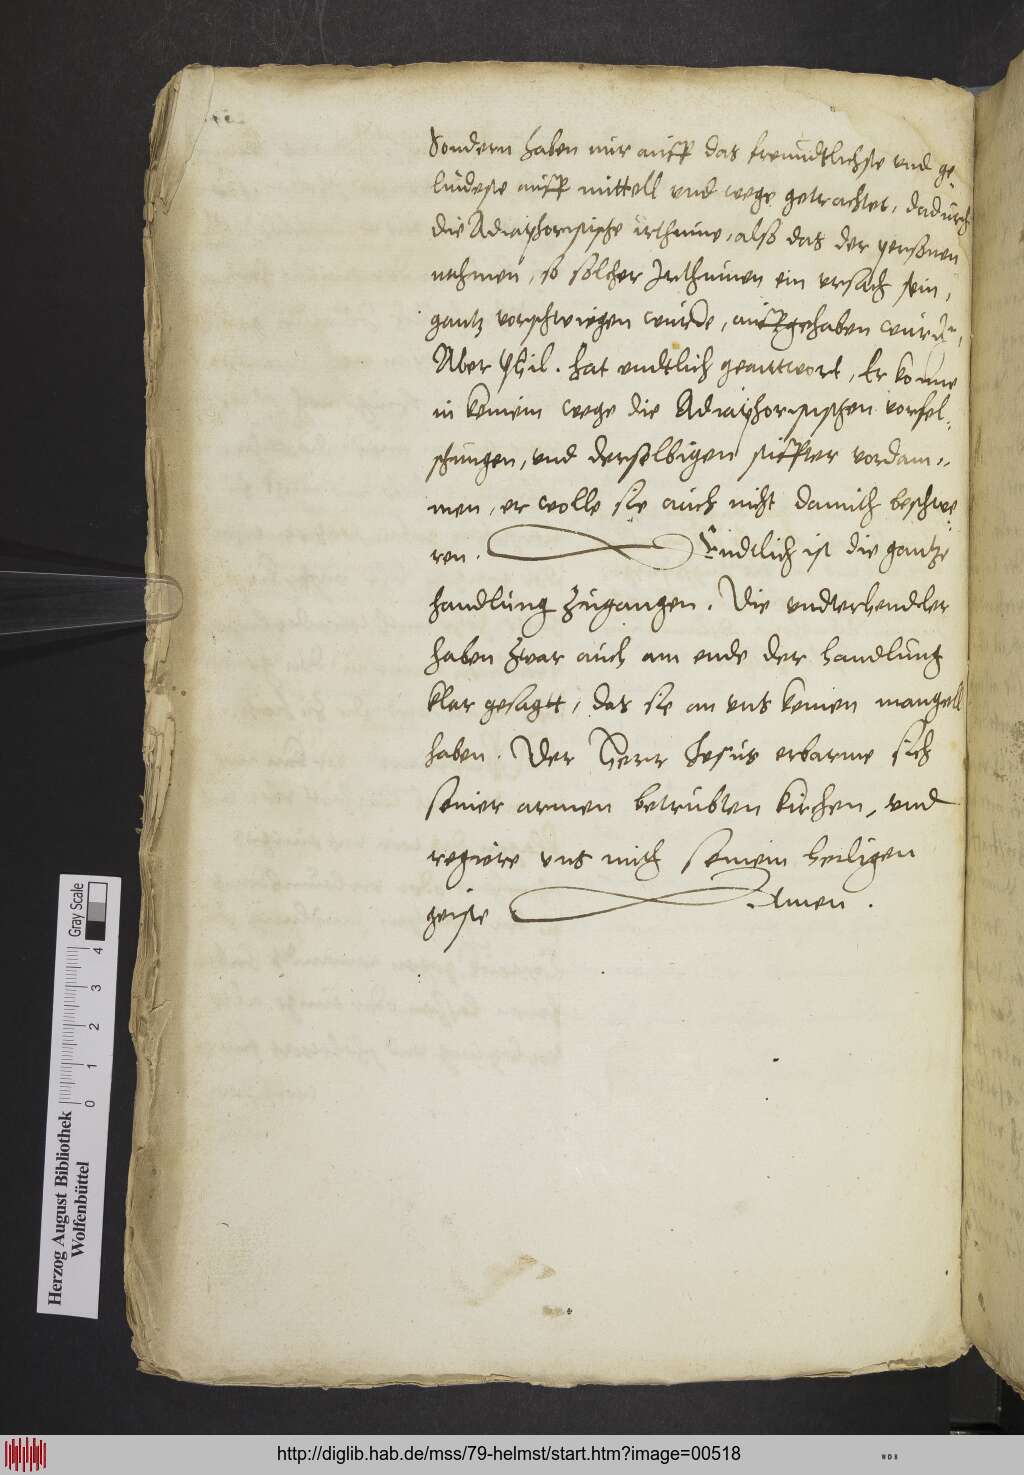 Sondern haben nur auff das freundtlichste vnd ge-
lindeste auff mittell vnd wege getrachtet, dadurch
die Adiaphoristische irthume, also das der personen
nahmen, so solcher Irthumen ein vrsach sein,
gantz vorschwiegen wurde, auffgehaben wurd.,
Aber Phil. hat endtlich geanttwort, Er konne
in keinem wege die Adiaphoristischen vorfel-
schungen, vnd derselbigen stiffter vordam-
men, er wolle sie auch nicht damith beschwe-
ren. Endtlich ist die gantze
handlung zugangen. Die vndterhendler
haben zwar auch am ende der handlung
klar gesagtt, das sie an vns keinen mangell
haben. Der Herr Jesus erbarme sich
seiner armen betrubten kirchen, vnd
regiere vns mith seinem heiligen
geiste Amen.
Gray Scale
0 1 2 3 4
Herzog August Bibliothek
Wolfenbüttel
http://diglib.hab.de/mss/79-helmst/start.htm?image=00518